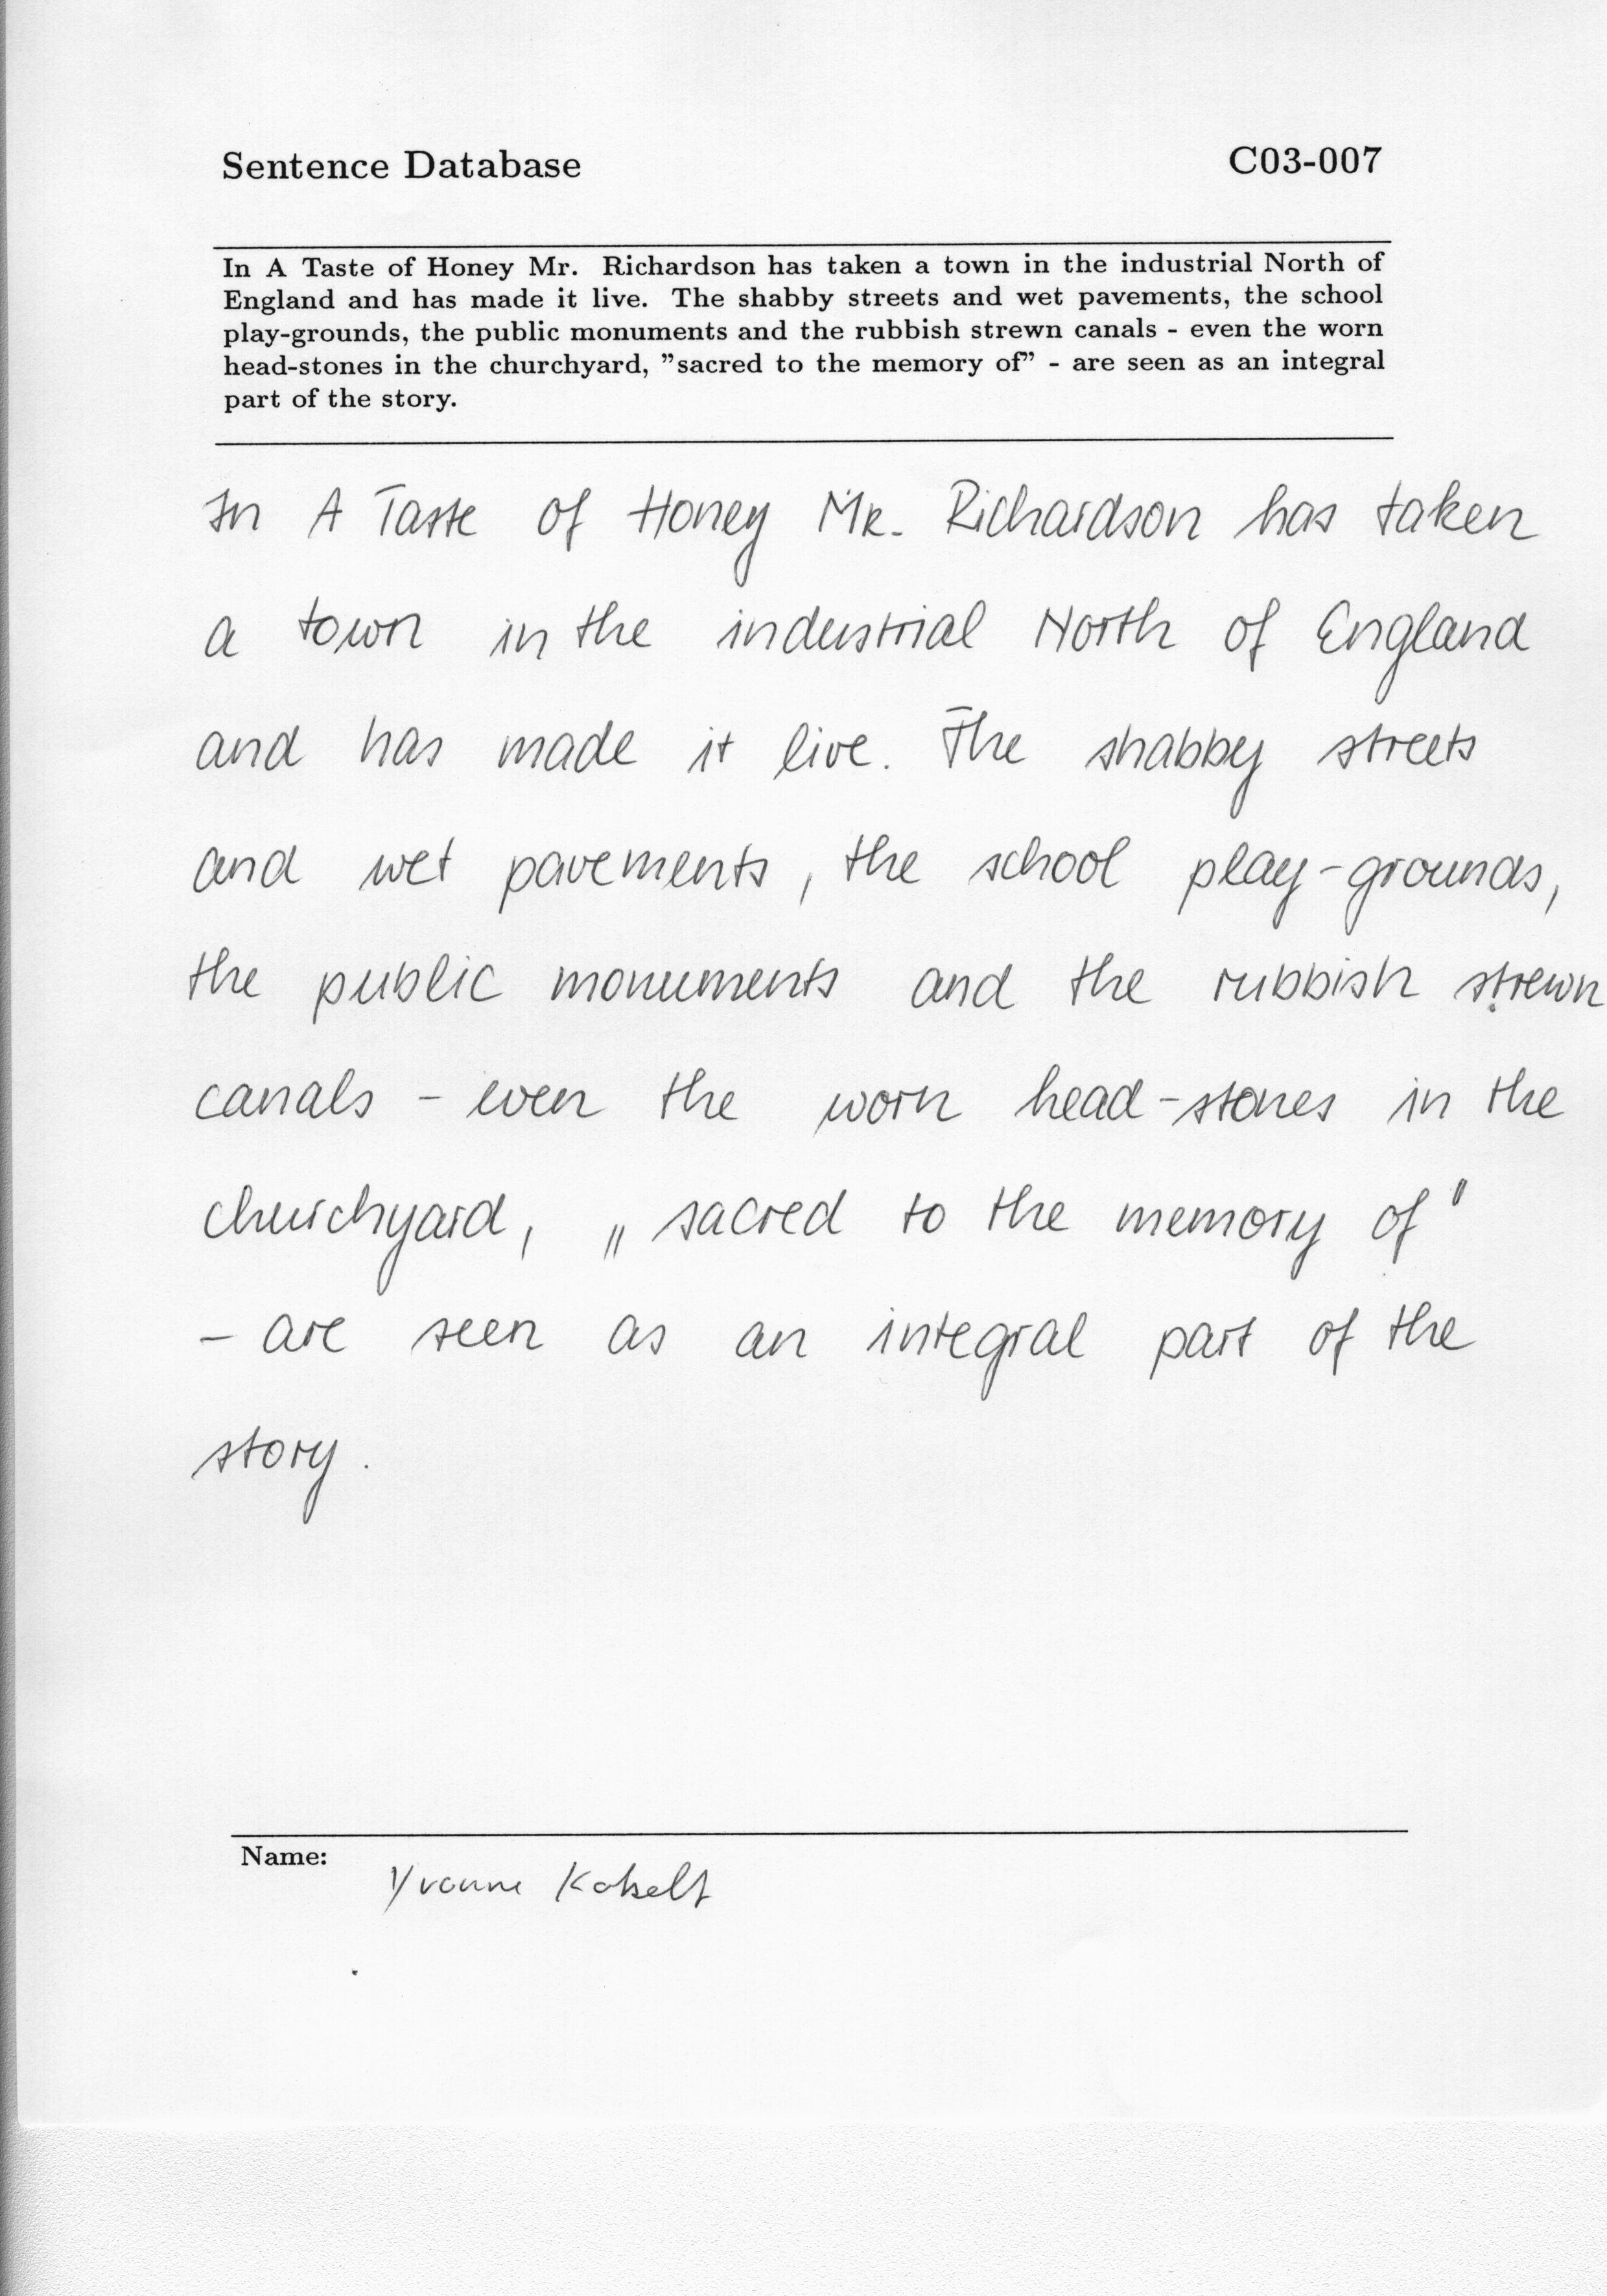 Sentence Database C03-007
In A Taste of Honey Mr. Richardson has taken a town in the industrial North of
England and has made it live. The shabby streets and wet pavements, the school
play-grounds, the public monuments and the rubbish strewn canals - even the worn
head-stones in the churchyard, "sacred to the memory of" - are seen as an integral
part of the story.
In A Taste of Honey Mr. Richardson has taken
a town in the industrial North of England
and has made it live. The shabby streets
and wet pavements, the school play-grounds,
the public monuments and the rubbish strewn
canals - even the worn head-stones in the
churchyard, „sacred to the memory of"
- are seen as an integral part of the
story.
Name: Yvonne